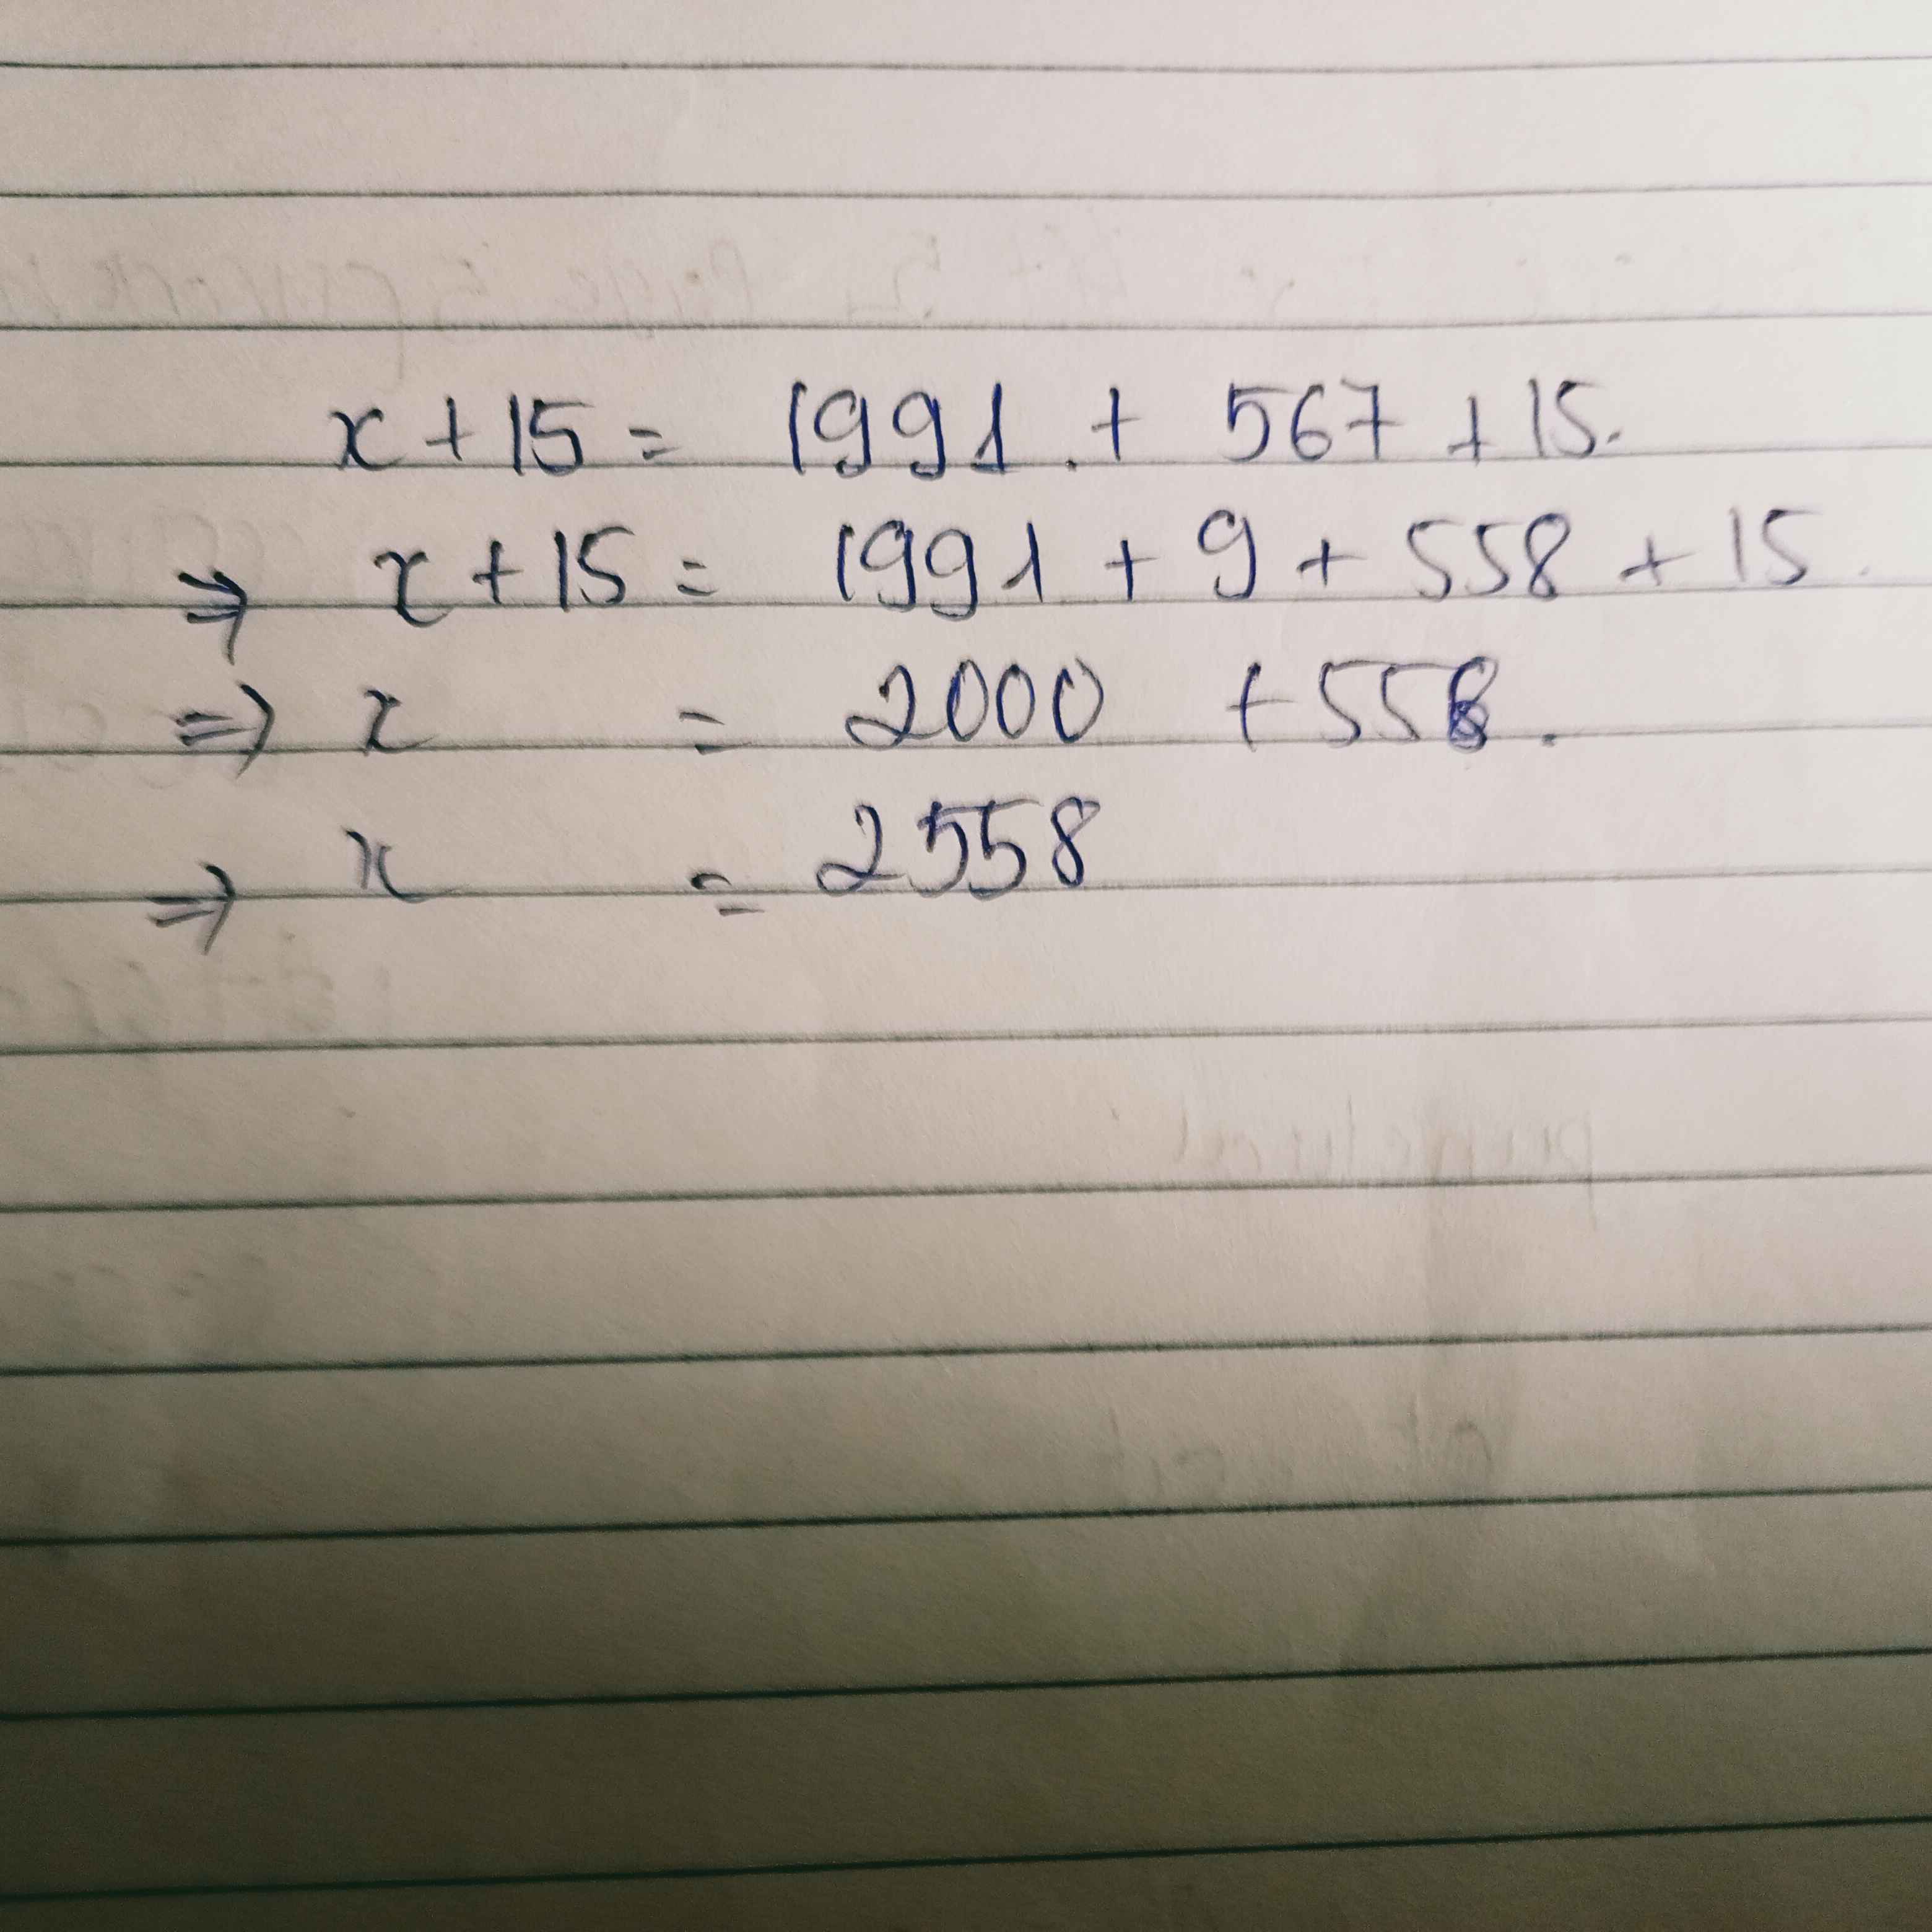 x + 15 = 1991 . + 567 + 15.
⇒ x + 15 = 1991 + 9 + 558 + 15.
⇒ x = 2000 + 558.
⇒ x = 2558